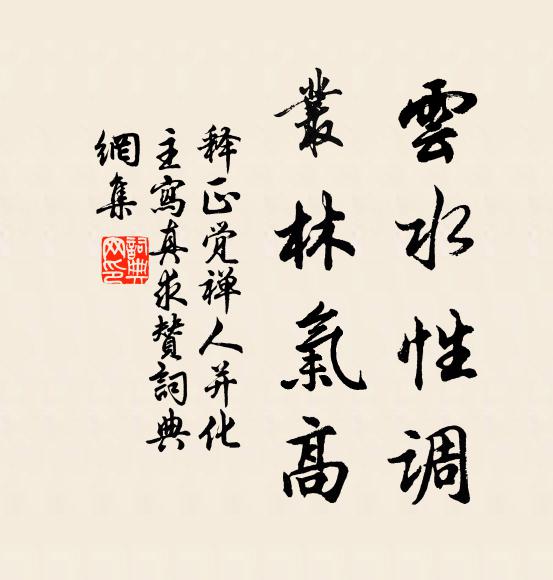 雲水性調
叢林氣高
释正觉禅人并化
主寫真求贊詞典
網集
詞典
网印